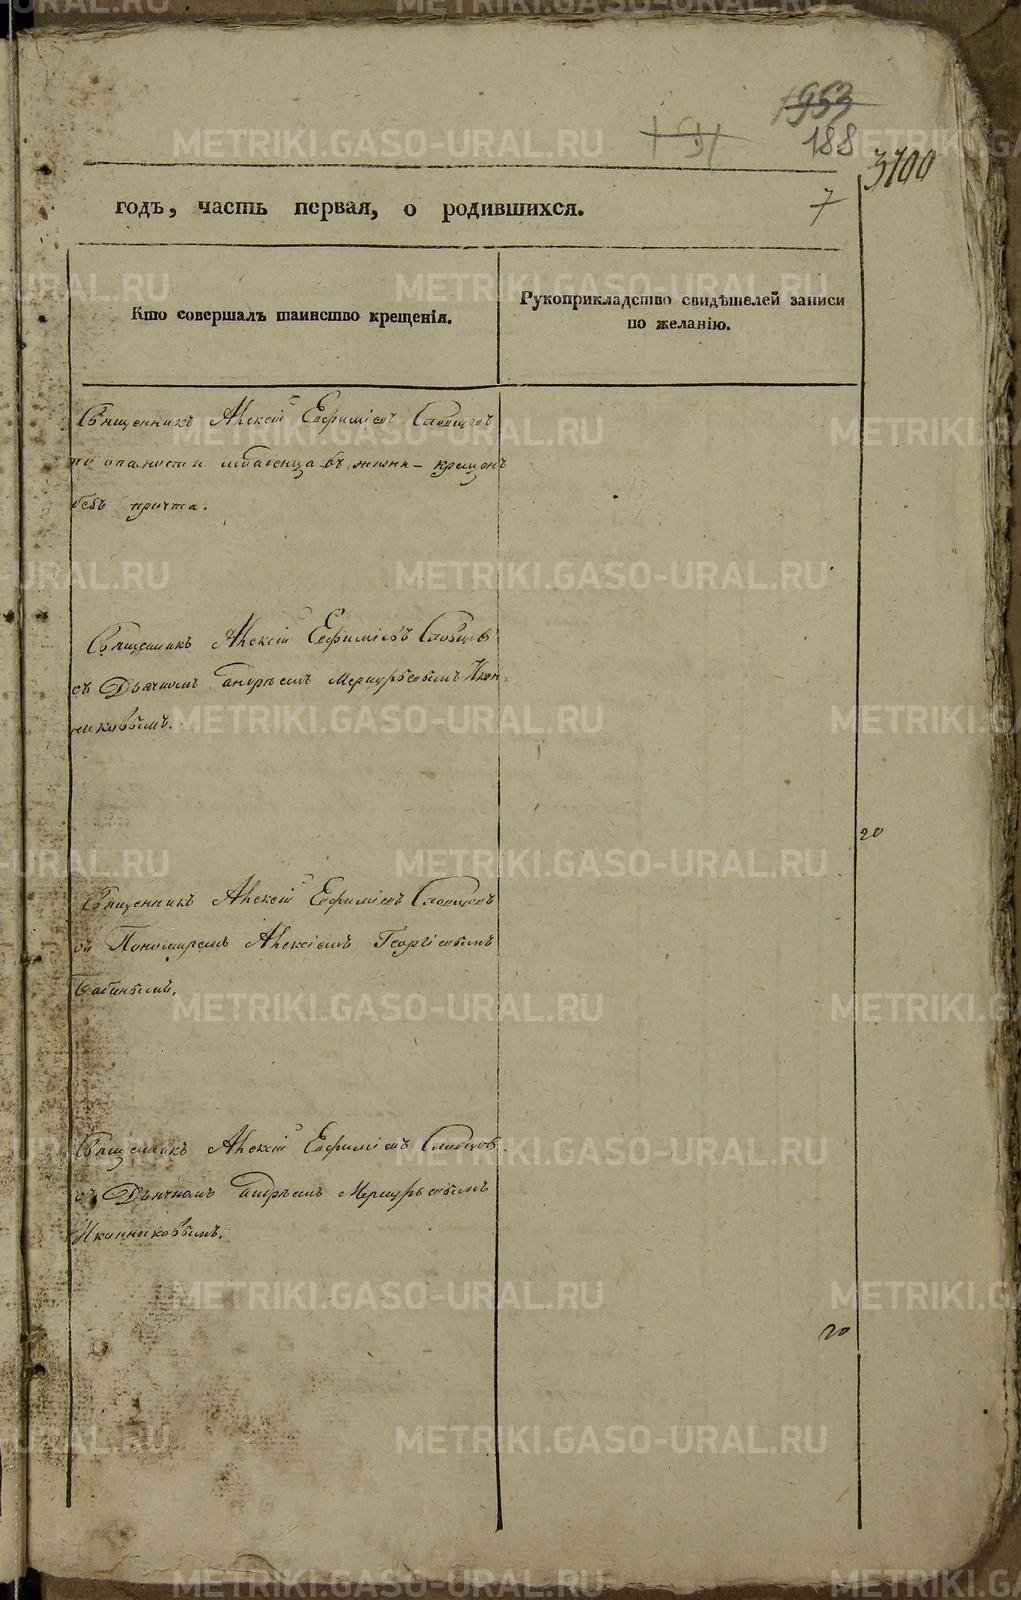 1953
191
188
3700
годъ, часть первая, о родившихся.
7
Кто совершалъ таинство крещенія.
Рукоприкладство свидѣтелей записи
по желанію.
Священникъ Алексій Евфиміевъ Словцовъ
по опасности младенца въ жизни - крещенъ
безъ причта.
Священникъ Алексій Евфиміевъ Словцовъ
съ Дьячкомъ Андреемъ Меркурьевымъ Икон-
никовымъ.
20
Священникъ Алексій Евфиміевъ Словцовъ
съ Пономаремъ Алексіемъ Георгіевымъ
Бабинымъ.
Священникъ Алексій Евфиміевъ Словцовъ
съ Дьячкомъ Андреемъ Меркурьевымъ
Иконниковымъ.
20
METRIKI.GASO-URAL.RU